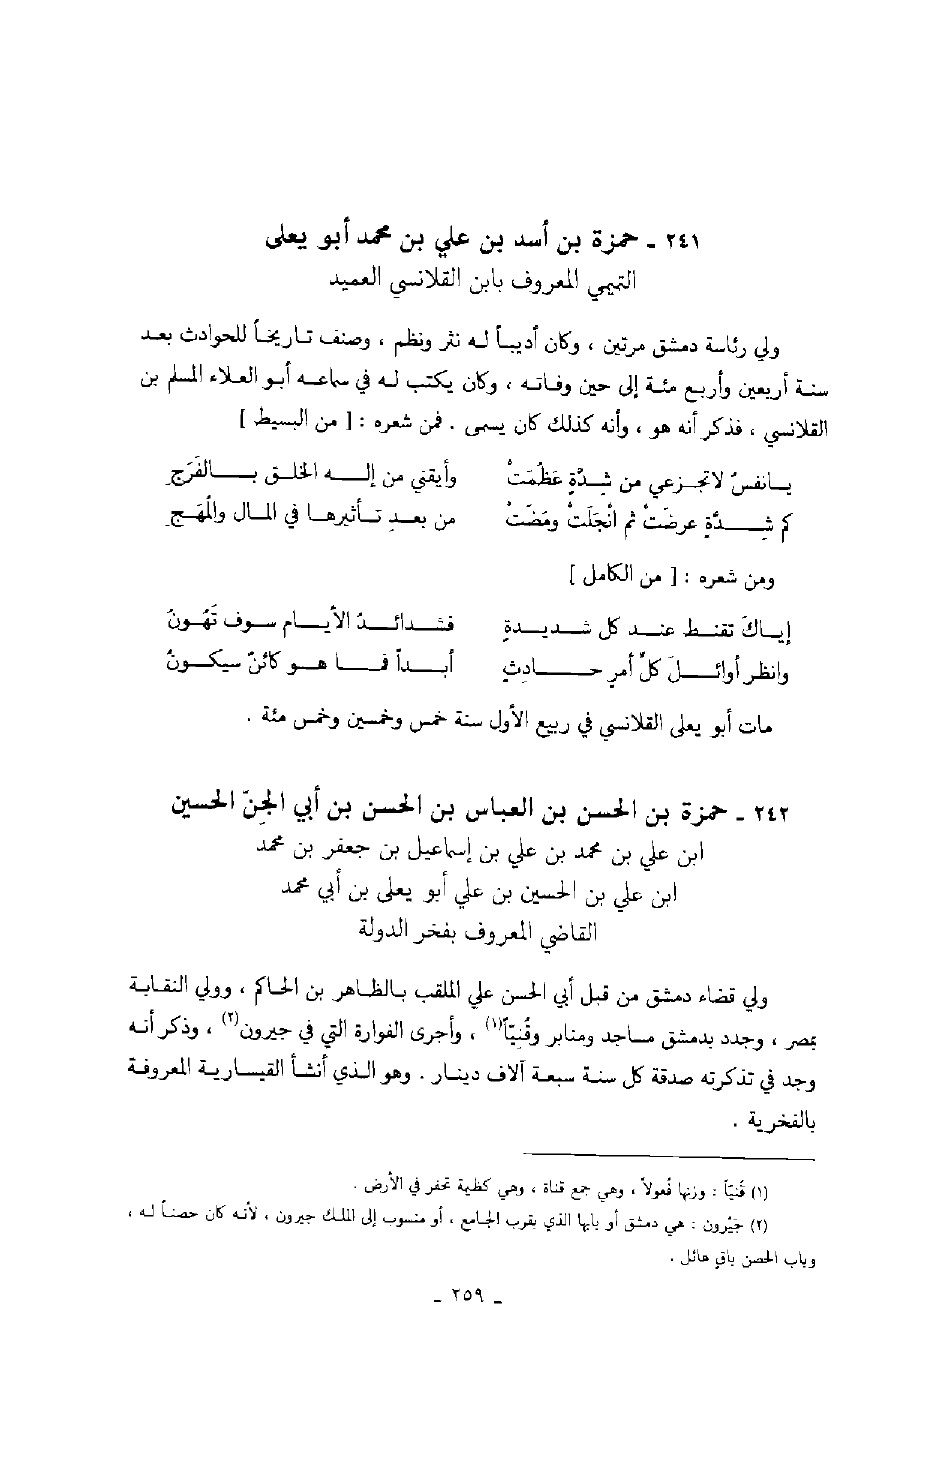 ٢٤١ ـ حمزة بن أسد بن علي بن محمد أبو يعلى
التميمي المعروف بابن القلانسي العميد
ولي رئاسة دمشق مرتين ، وكان أديباً له نثر ونظم ، وصنف تاريخاً للحوادث بعد
سنة أربعين وأربع مئة إلى حين وفاته ، وكان يكتب له في سماعه أبو العلاء المسلم بن
القلانسي ، فذكر أنه هو ، وأنه كذلك كان يسمى . فمن شعره : [ من البسيط ]
يانفسُ لاتجزعي من شِدّةٍ عَظُمَتْ وأيقني من إله الخلق بالفَرَجِ
كم شِدَّةٍ عرضَتْ ثم انْجَلَتْ ومَضَتْ من بعدِ تأثيرها في المال والمُهَجِ
ومن شعره : [ من الكامل ]
إياكَ تقنط عند كل شديدةٍ فشدائدُ الأيام سوف تَهُونُ
وانظر أوائلَ كلِّ أمرٍ حادثٍ أبداً فما هو كائنٌ سيكونُ
مات أبو يعلى القلانسي في ربيع الأول سنة خمس وخمسين وخمس مئة .
٢٤٢ ـ حمزة بن الحسن بن العباس بن الحسن بن أبي الجنّ الحسين
ابن علي بن محمد بن علي بن إسماعيل بن جعفر بن محمد
ابن علي بن الحسين بن علي أبو يعلى بن أبي محمد
القاضي المعروف بفخر الدولة
ولي قضاء دمشق من قبل أبي الحسن علي الملقب بالظاهر بن الحاكم ، وولي النقابة
بمصر ، وجدد بدمشق مساجد ومنابر وقُنِيّاً(١) ، وأجرى الفوارة التي في جيرون(٢) ، وذكر أنه
وجد في تذكرته صدقة كل سنة سبعة آلاف دينار . وهو الذي أنشأ القيسارية المعروفة
بالفخرية .
(١) قُنِيّاً : وزنها فُعولاً ، وهي جمع قناة ، وهي كظيمة تحفر في الأرض .
(٢) جَيْرون : هي دمشق أو بابها الذي بقرب الجامع ، أو منسوب إلى الملك جيرون ، لأنه كان حصناً له ،
وباب الحصن باقٍ هائل .
ـ ٢٥٩ ـ